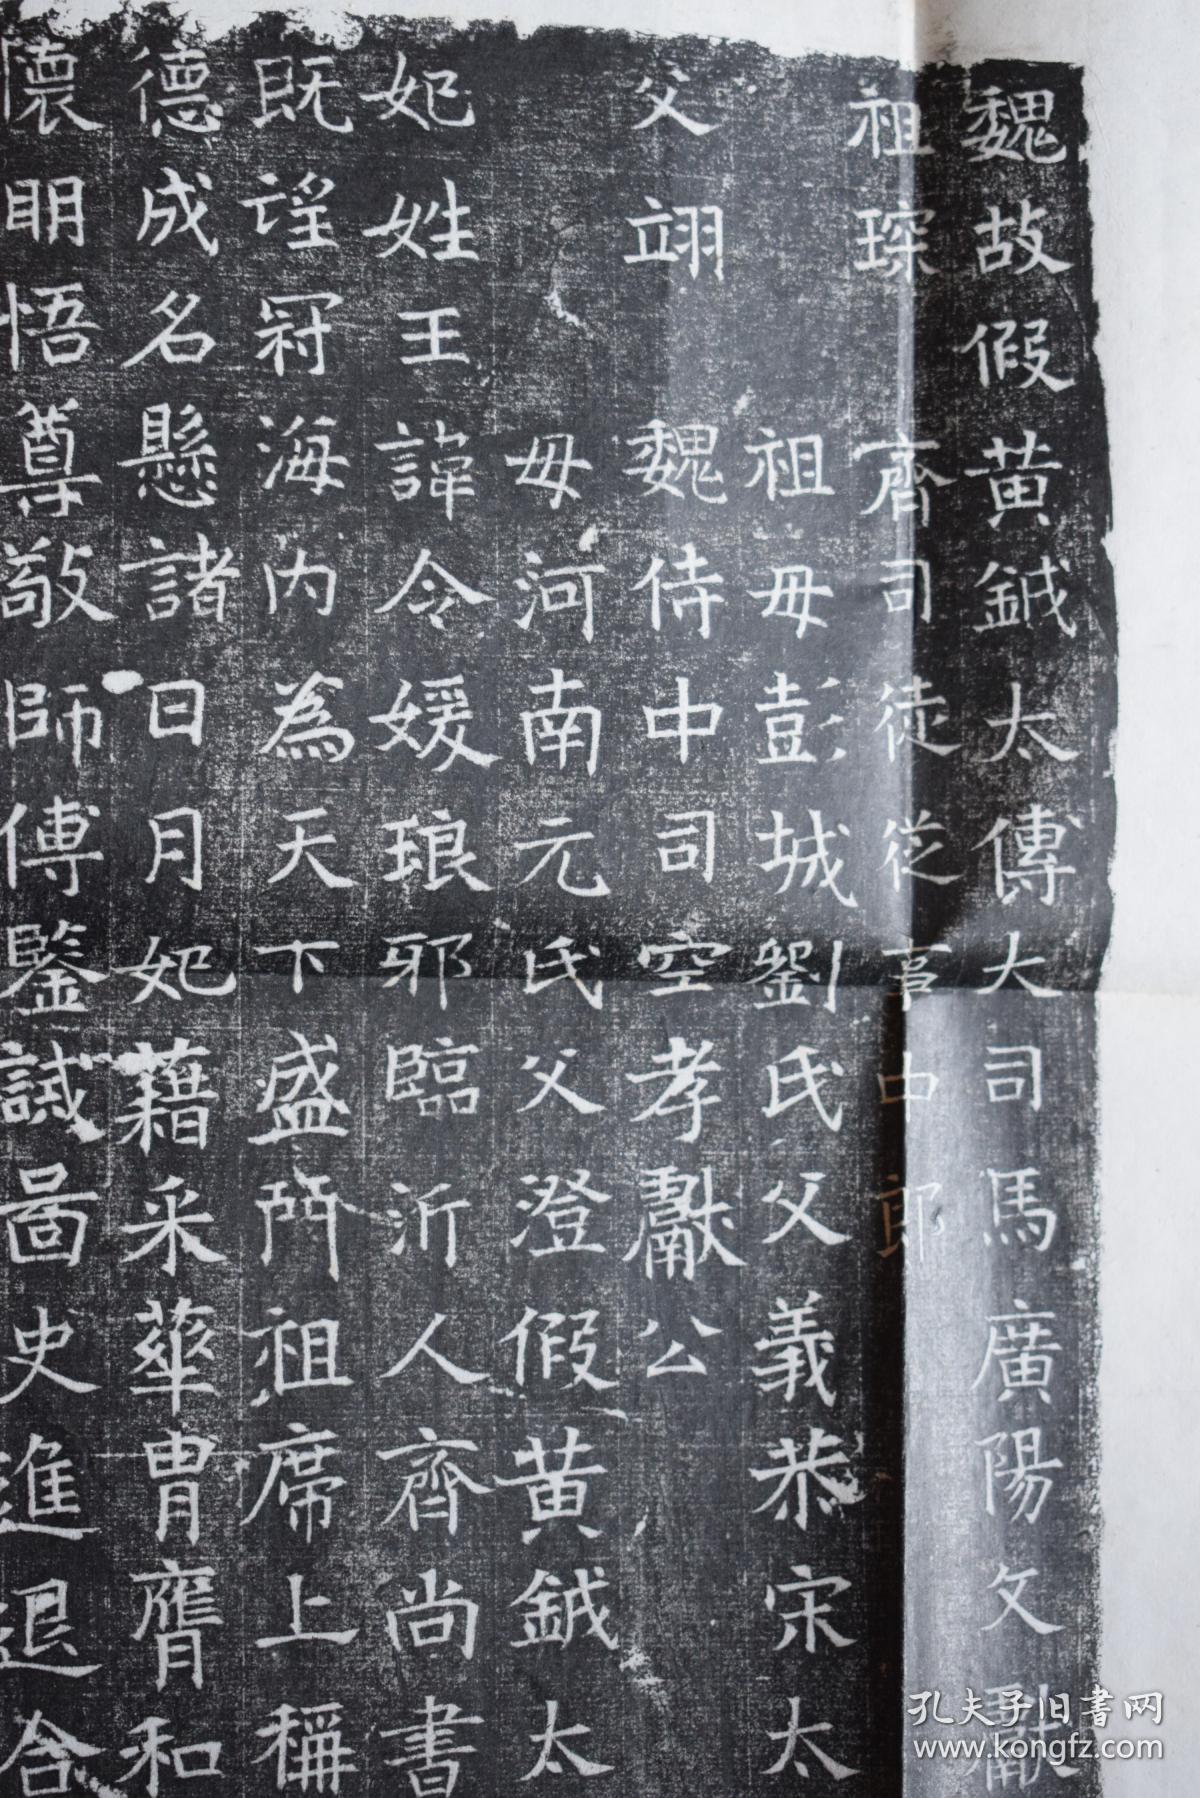 魏故假黄鉞太傅大司馬廣陽文獻
祖琛 齊司徒從事中郎
祖母彭城劉氏父義恭宋太
父翊 魏侍中司空孝獻公
母河南元氏父澄假黄鉞太
妃姓王諱令媛琅邪臨沂人齊尚書
既望冠海内為天下盛門祖席上稱
德成名懸諸日月妃藉采華胄膺和
懷明悟尊敬師傅鑒誡啚史進退合
孔夫子旧書网
www.kongfz.com